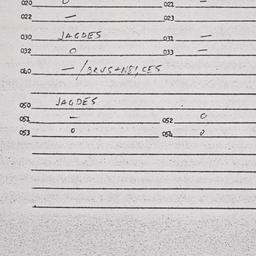 020 0 021 -
022 - 023
030 JAGDES 031 -
032 0 033 -
040 - /
050 JAGDES
051 - 052 0
053 0 054 0